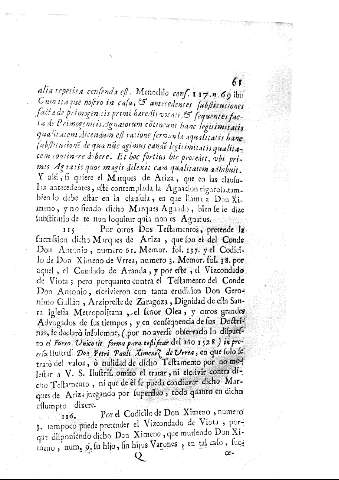 61
alia repetita censenda est. Menochio cons. 117. n. 69 ibi:
Cum itaque nostro in casu, & antecedentes substitutiones
factæ de primogenitis primi hæredis vocati, & sequentes fac-
tæ de Primogenitis Agnatorum contineant hanc legitimitatis
qualitatem dicendum est ratione servanda æqualitatis hanc
substitutionem de qua nunc agimus eandem legitimitatis qualita-
tem continere debere. Et hoc fortius hic procedit, ubi pri-
mis Agnatis quos magis dilexit eam qualitatem adhibuit.
Y assi, si quiere el Marques de Ariza, que en las clausu-
las antecedentes, esté contemplada la Agnacion rigorosa tam-
bien lo debe estar en la clausula, en que llama a Don Xi-
meno, y no siendo dicho Marques Agnado, bien se le dize
substitutio de te non loquitur quia non es Agnatus.
115 Por otros Dos Testamentos, pretende la
sucession dicho Marques de Ariza, que son el del Conde
Don Antonio, numero 61. Memor. fol. 157. y el Codicil-
lo de Don Ximeno de Vrrea, numero 3. Memor. fol. 38. por
aquel, el Condado de Aranda, y por este, el Vizcondado
de Viota; pero porquanto contra el Testamento del Conde
Don Antonio, escrivieron con tanta erudicion Don Gero-
nimo Gullan, Arzipreste de Zaragoza, Dignidad de esta San-
ta Iglesia Metropolitana, el señor Olea, y otros grandes
Advogados de sus tiempos, y en consequencia de sus Doctri-
nas, se declaró insolemne, (por no averse observado lo dispues-
to el Foro Unico de forma para testificar del año 1528) in pro-
cessu Illustris. Don Petri Pauli Ximenez de Urrea, en que solo se
trató del valor, ó nulidad de dicho Testamento por no mo-
lestar a V. S. Ilustris. omito el tratar, ni escrivir contra di-
cho Testamento, ni que de él se pueda condecir dicho Mar-
ques de Ariza juzgando por superfluo, todo quanto en dicho
assumpto dixere.
116. Por el Codicilo de Don Ximeno, numero
3. tampoco puede pretender el Vizcondado de Viota, por-
que disponiendo dicho Don Ximeno, que muriendo Don Xi-
meno, num. 9. su hijo, sin hijos Varones, en tal caso, suce-
Q ce-